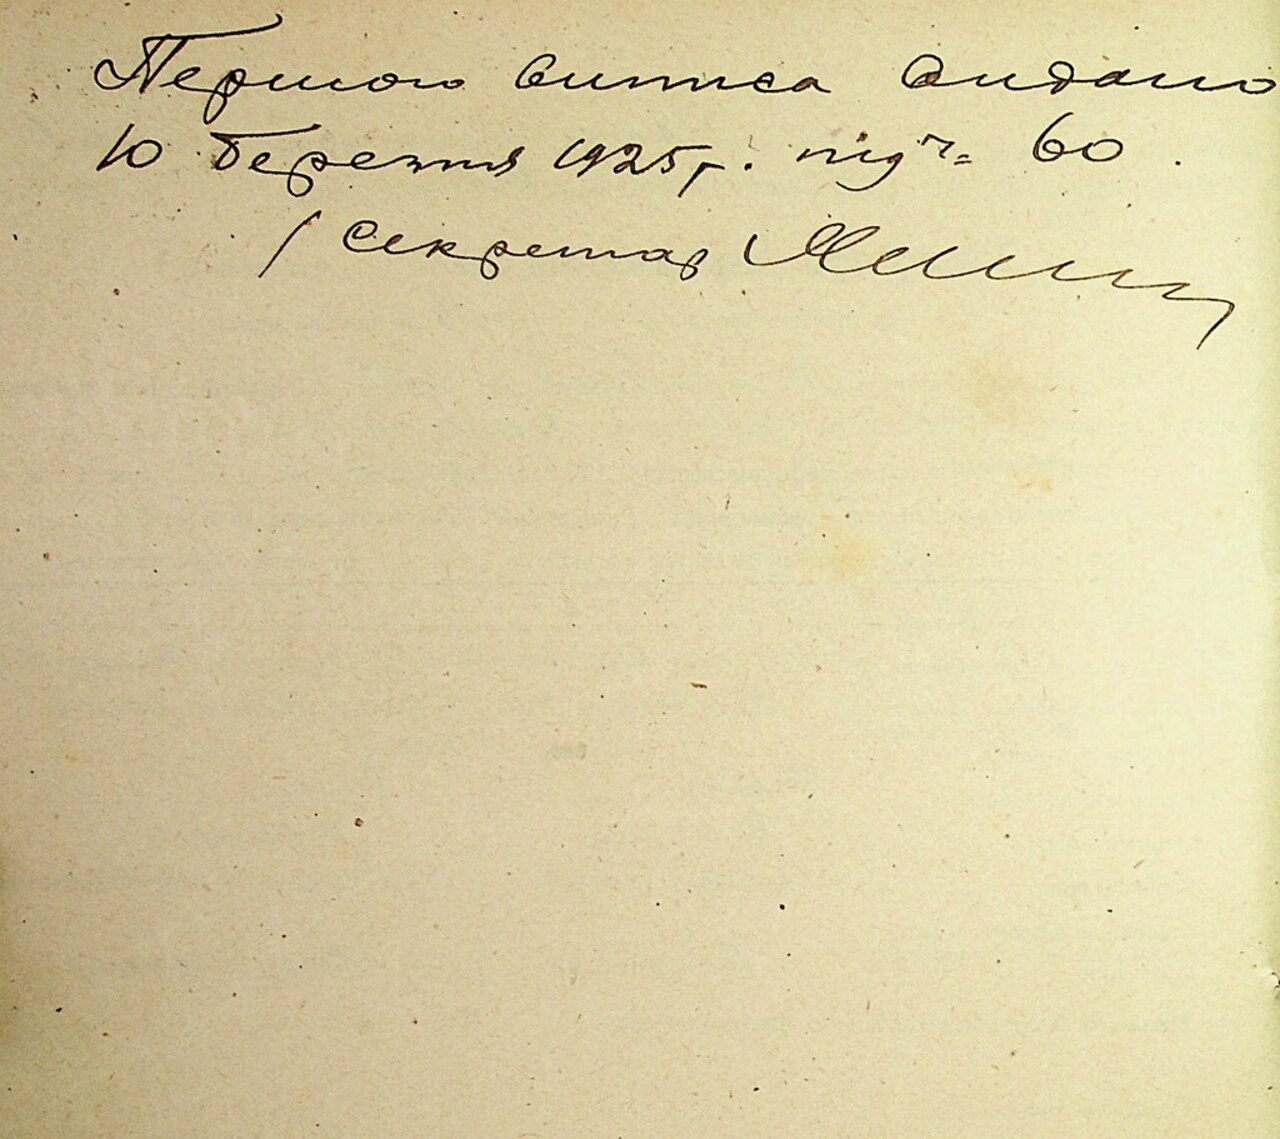 Першого витяга видано
10 березня 1925 р. під ч. 60.
/ Секретар